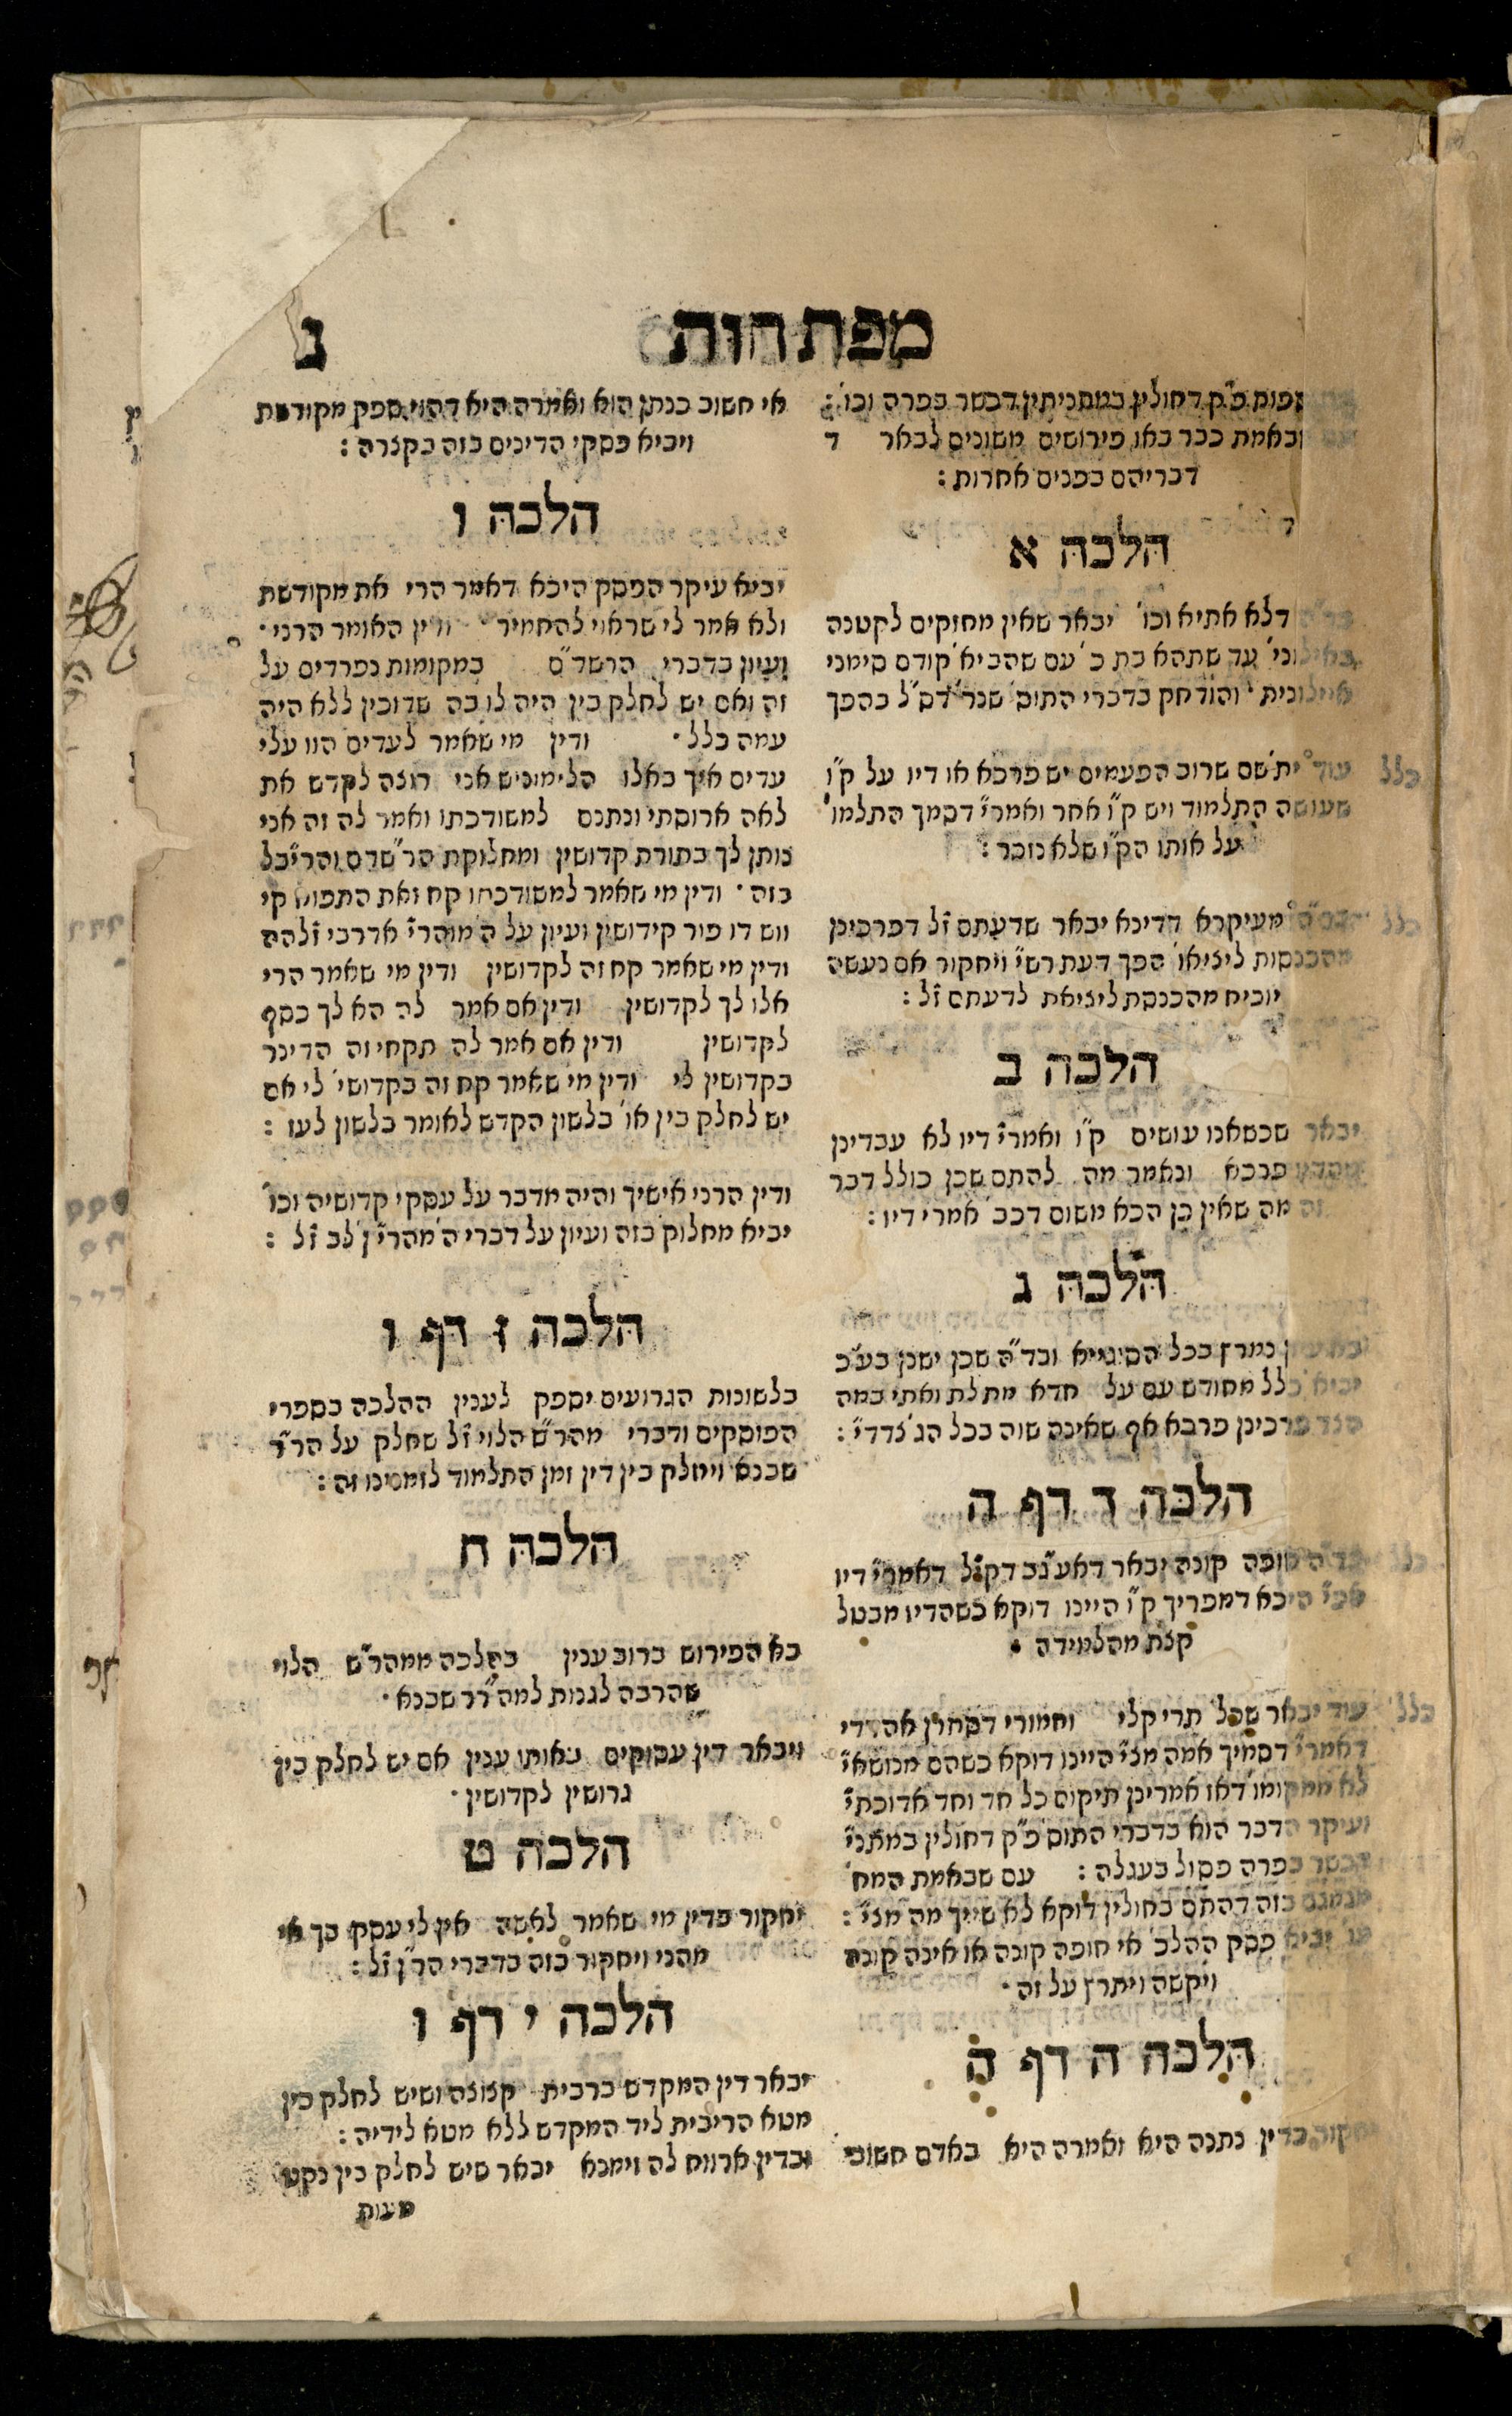 מפתחות
ג
תפום פ״ק דחולין במתניתין דכשר בפרה וכו׳ :
ובאמת כבר באו פירושים משונים לבאר ד
דבריהם בפנים אחרות :
הלכה א
דלא אתיא וכו׳ יבאר שאין מחזקים לקטנה
עד שתהא בת כ׳ עם שהביא קודם סימני
איילונית והודחק בדברי התוס׳ שנר׳ דס״ל בהפך
כלל
עוד ית׳ שם שרוב הפעמים יש פרכא או דיו על ק״ו
שעושה התלמוד ויש ק״ו אחר ואמרי׳ דסמך התלמו׳
על אותו הק״ו שלא נזכר :
כלל
מעיקרא דדינא יבאר שדעתם ז״ל דפרכינן
מהכנסות ליציאו׳ הפך דעת רש״י ויחקור אם נעשה
יוכיח מהכנסת ליציאת לדעתם ז״ל :
הלכה ב
יבאר שכשאנו עושים ק״ו ואמרי׳ דיו לא עבדינן
פרכא ונאמר מה להתם שכן כולל דבר
זה מה שאין כן הכא משום דכבר אמרי׳ דיו :
הלכה ג
נמרץ בכל הסוגייא ובד״ה שכן ישנן בע״כ
יביא כלל מחודש עם על חדא מתלת ואתי במה
הצד פרכינן פרכא אף שאינה שוה בכל הג׳ צדדי׳ :
הלכה ד דף ה
כלל
חופה קונה יבאר דאע״ג דק״ל דאמרי׳ דיו
היכא דמפריך ק״ו היינו דוקא כשהדיו מבטל
קצת מהלמידה
כלל
עוד יבאר שכל תרי קלי וחמורי דסתרן אהדדי
דאמרי׳ דסמיך אמה מצי׳ היינו דוקא כשהם מנושאי׳
לא ממקומו׳ דאז אמרינן תיקום כל חד וחד אדוכתי׳
ועיקר הדבר הוא בדברי התוס׳ פ״ק דחולין במתני׳
הכשר בפרה פסול בעגלה : עם שבאמת המח׳
בזה דהתם בחולין דוקא לא שייך מה מצי׳ :
יביא פסק ההלכ׳ אי חופה קונה או אינה קונה
ויקשה ויתרץ על זה ·
הלכה ה דף ה
בדין נתנה היא ואמרה היא באדם חשוב
אי חשוב כנתן הוא ואמרה היא דהוי ספק מקודשת
ויביא פסקי הדינים בזה בקצרה :
הלכה ו
יביא עיקר הפסק היכא דאמר הרי את מקודשת
ולא אמר לי שראוי להחמיר ודין האומר הרני ·
ועיון בדברי הרשד״ם במקומות נפרדים על
זה ואם יש לחלק בין היה לו בה שדוכין ללא היה
עמה כלל · ודין מי שאמר לעדים הוו עלי
עדים איך באלו הלימוניש אני רוצה לקדש את
לאה ארוסתי ונתנם למשודכתו ואמר לה זה אני
נותן לך בתורת קדושין ומחלוקת הר״שדם והר״יבל
בזה · ודין מי שאמר למשודכתו קח זאת התפוח קי
ווש דו פור קידושין ועיון על ה׳ מוהר״י אדרבי ז״להה
ודין מי שאמר קח זה לקדושין ודין מי שאמר הרי
אלו לך לקדושין ודין אם אמר לה הא לך כסף
לקדושין ודין אם אמר לה תקחי זה הדינר
בקדושין לי ודין מי שאמר קח זה בקדושי׳ לי אם
יש לחלק בין או׳ בלשון הקדש לאומר בלשון לעז :
ודין הרני אישיך והיה מדבר על עסקי קדושיה וכו׳
יביא מחלוק׳ בזה ועיון על דברי ה׳ מהר״י ן׳ לב ז״ל :
הלכה ז דף ו
בלשונות הגרועים יספק לענין ההלכה בספרי
הפוסקים ודברי מהר״ש הלוי ז״ל שחלק על הר״ד
שבנא ויחלק בין דין זמן התלמוד לזמנינו זה :
הלכה ח
בא הפירוש ברוב ענין בהלכה ממהר״ש הלוי
שהרבה לגנות למה״רר שבנא ·
ויבאר דין עסוקים באותו ענין אם יש לחלק בין
גרושין לקדושין ·
הלכה ט
יחקור בדין מי שאמר לאשה אין לי עסק בך אי
מהני ויחקור בזה בדברי הר״ן ז״ל :
הלכה י דף ו
יבאר דין המקדש ברבית קצוצה ושיש לחלק בין
מטא הריבית ליד המקדש ללא מטא לידיה :
ובדין ארווח לה זימנא יבאר שיש לחלק בין נקט
מעות